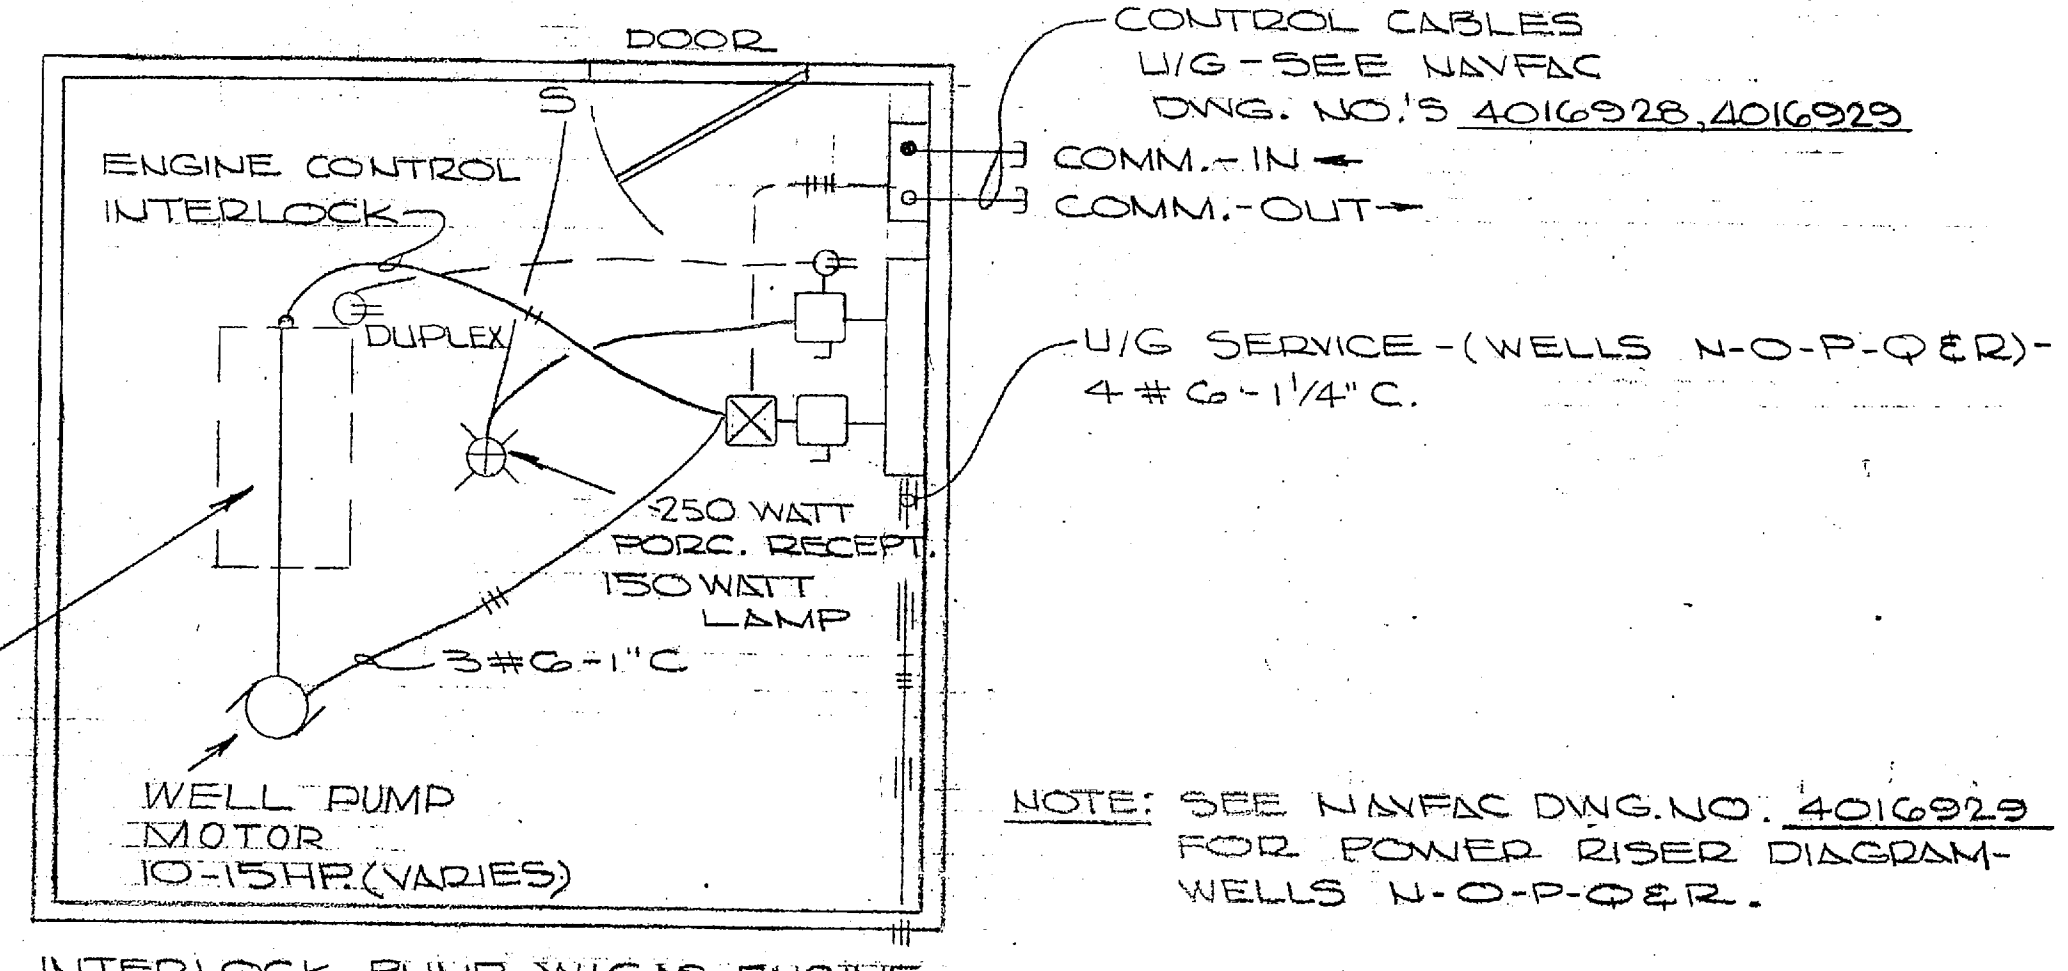 DOOR
S
CONTROL CABLES
U/G - SEE NAVFAC
DWG. NO.'S 4016928, 4016929
COMM. - IN
COMM. - OUT
ENGINE CONTROL
INTERLOCK
DUPLEX
U/G SERVICE - (WELLS N-O-P-Q & R) -
4 # 6 - 1 1/4" C.
250 WATT
PORC. RECEPT.
150 WATT
LAMP
3 # 6 - 1" C
WELL PUMP
MOTOR
10-15 HP. (VARIES)
NOTE: SEE NAVFAC DWG. NO. 4016929
FOR POWER RISER DIAGRAM-
WELLS N-O-P-Q & R.
INTERLOCK PUMP W/GAS ENGINE